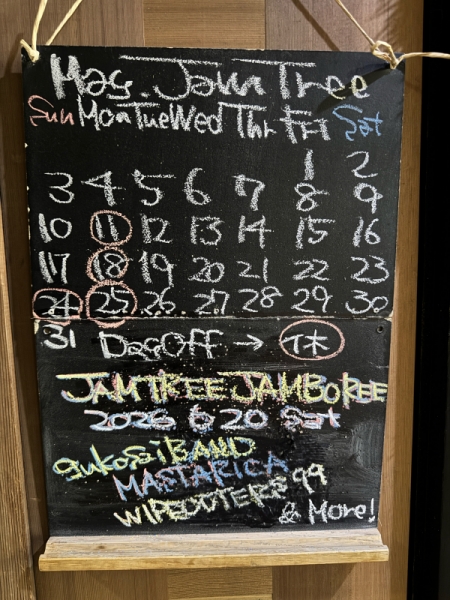 May. Jam Tree
Sun Mon Tue Wed Thr Fri Sat
1 2
3 4 5 6 7 8 9
10 11 12 13 14 15 16
17 18 19 20 21 22 23
24 25 26 27 28 29 30
31 Day Off → 休
JAMTREE JAMBOREE
2026 6 20 Sat
MASTARICA
WIPEOUTERS 99
& More!